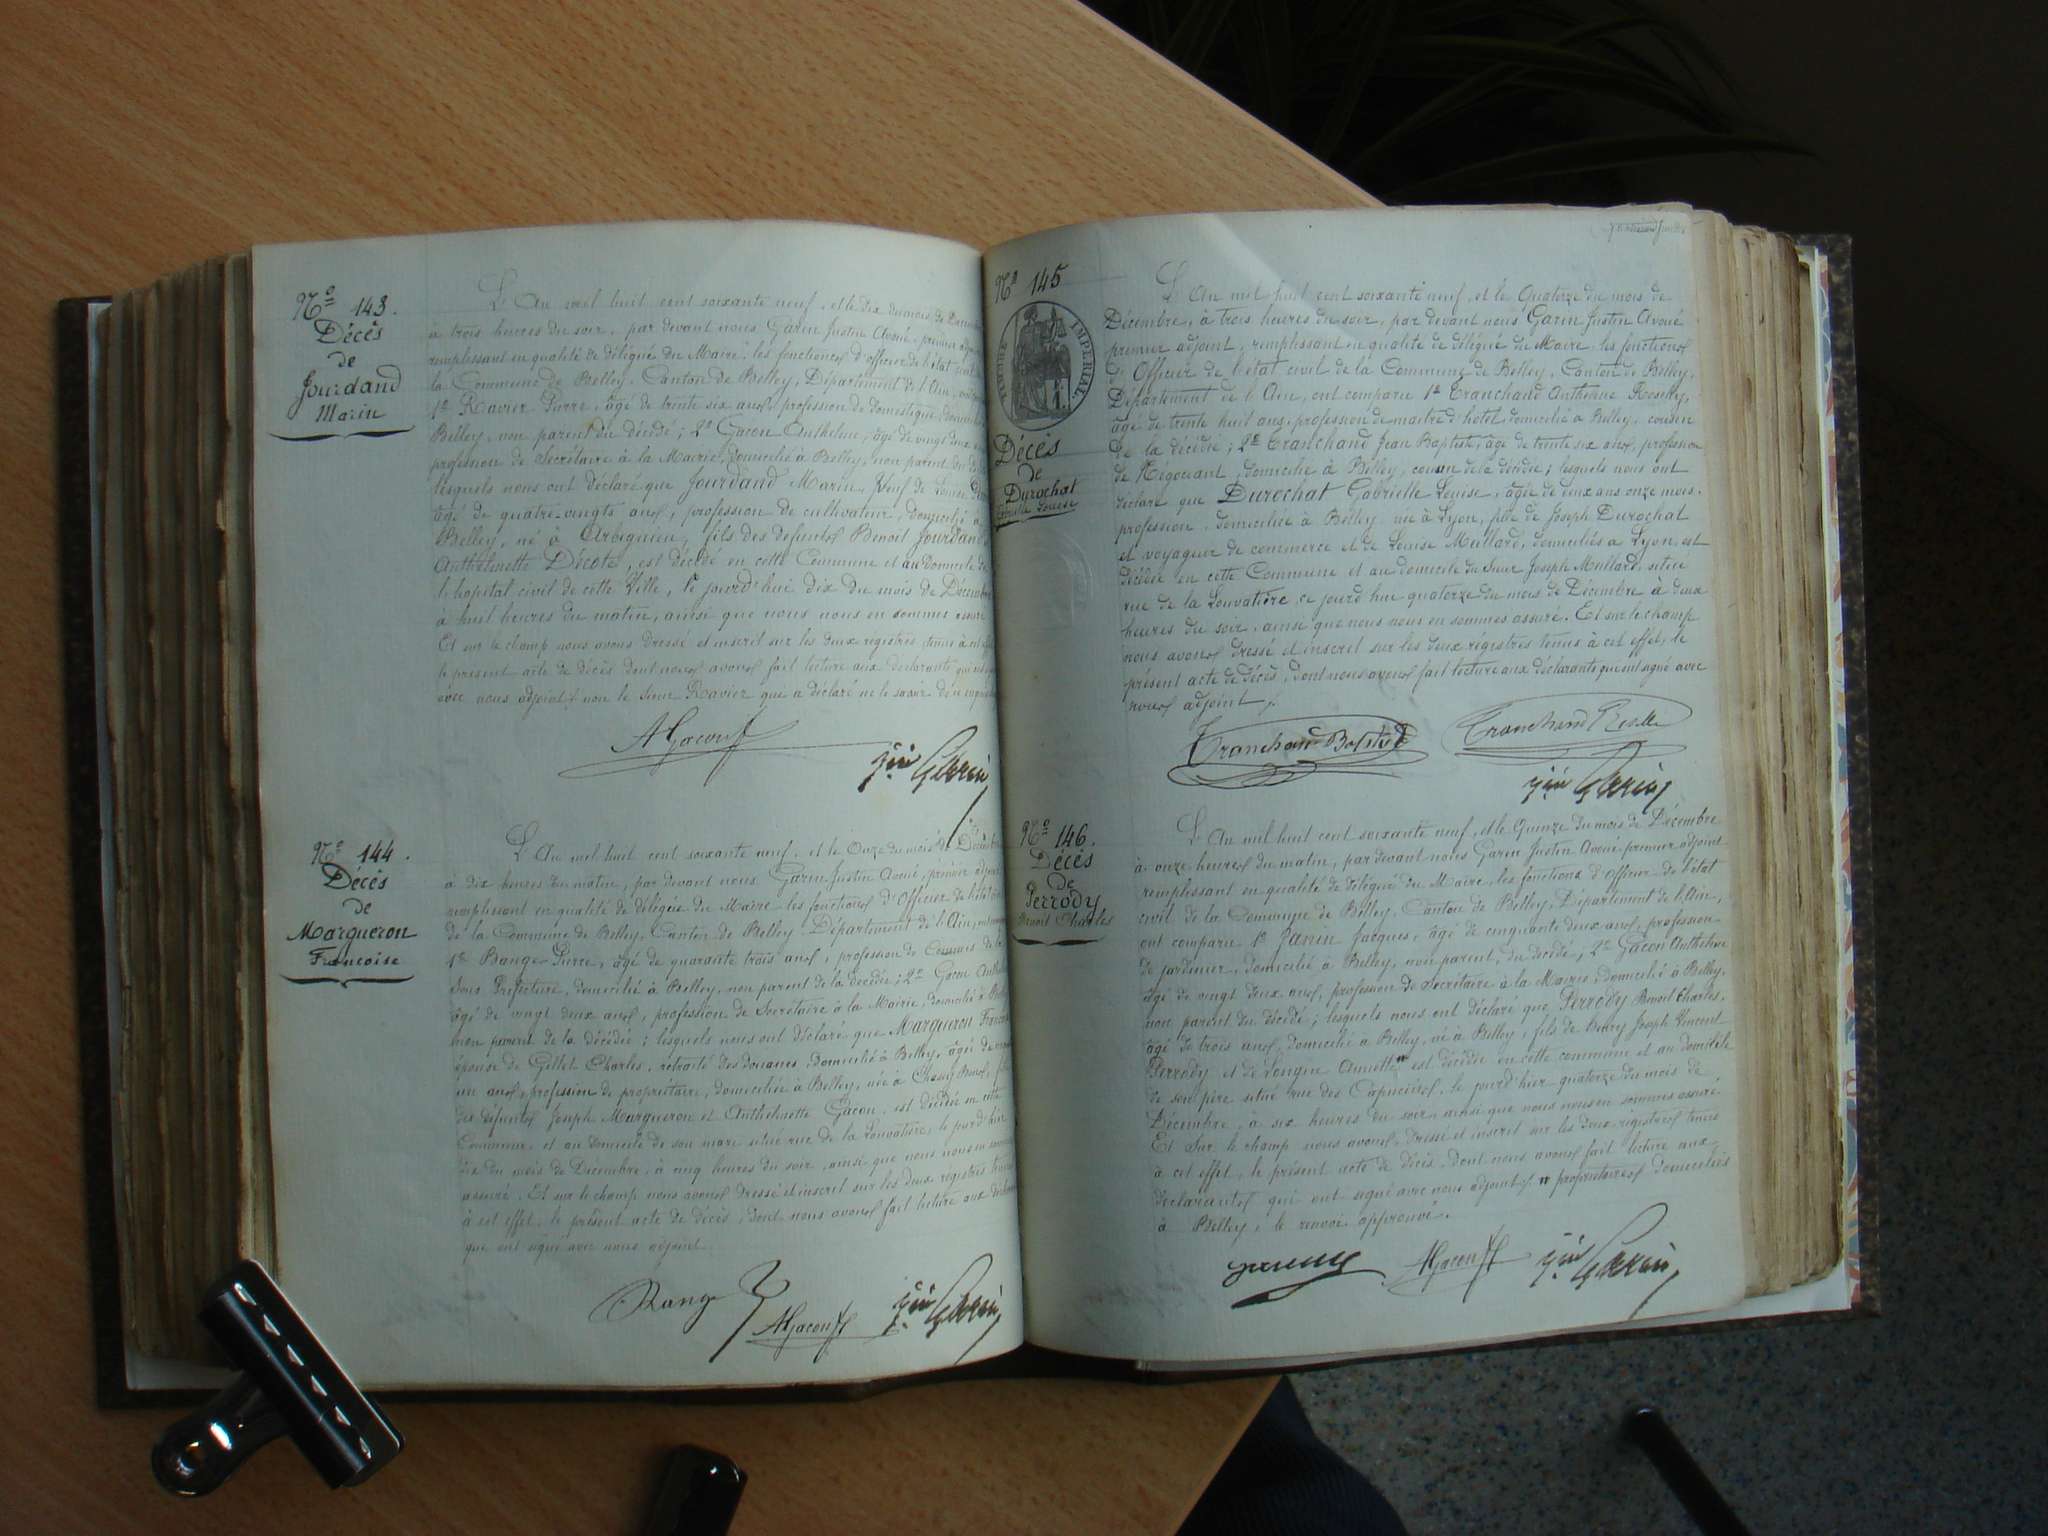 No 143.
Décès
de
Jourdand
Marin
L'An mil huit cent soixante neuf, et le Dix du mois de Décembre
à trois heures du soir, par devant nous Garin Justin Avoué, premier
remplissant en qualité de délégué du Maire, les fonctions d'officier de l'état civil
la Commune de Belley, Canton de Belley, Département de l'Ain,
1o Ravier Pierre, âgé de trente six ans, profession de domestique,
Belley, non parent du décédé; 2o Gacon Anthelme, âgé de vingt deux
profession de Secrétaire à la Mairie, domicilié à Belley, non parent du
lesquels nous ont déclaré que Jourdand Marin, Veuf de Louise
âgé de quatre-vingts ans, profession de cultivateur, domicilié à
Belley, né à Arbignieu, fils des défunts Benoit Jourdand
Anthelmette Décote, est décédé en cette Commune et au domicile de
l'hopital civil de cette Ville, le jourd'hui dix du mois de Décembre
à huit heures du matin, ainsi que nous nous en sommes assuré
Et sur le champ nous avons dressé et inscrit sur les deux registres tenus à
le présent acte de décès dont nous avons fait lecture aux déclarants
avec nous adjoint, non le Sieur Ravier qui a déclaré ne le savoir
AGacon
Jin Garin
No 144.
Décès
de
Margueron
Françoise
L'An mil huit cent soixante neuf, et le Onze du mois de Décembre
à dix heures du matin, par devant nous Garin Justin Avoué, premier adjoint
remplissant en qualité de délégué du Maire les fonctions d'Officier de l'état
de la Commune de Belley, Canton de Belley, Département de l'Ain,
1o Bange Pierre, âgé de quarante trois ans, profession de Commis de la
Sous Préfecture, domicilié à Belley, non parent de la décédée; 2o Gacon
âgé de vingt deux ans, profession de Secrétaire à la Mairie, domicilié à
non parent de la décédée; lesquels nous ont déclaré que Margueron
épouse de Gillet Charles, retraité des douanes, domicilié à Belley, âgée de
un ans, profession de propriétaire, domiciliée à Belley, née à
des défunts Joseph Margueron et Anthelmette Gacon, est décédée en cette
Commune, et au domicile de son mari situé rue de la Louvatière, le jourd'hier
dix du mois de Décembre, à cinq heures du soir, ainsi que nous nous en
assuré. Et sur le champ nous avons dressé et inscrit sur les deux registres tenus
à cet effet, le présent acte de décès, dont nous avons fait lecture aux
qui ont signé avec nous adjoint.
Bange
AGacon
Jin Garin
No 145
TIMBRE IMPERIAL.
Décès
de
Durochat
Gabrielle Louise
L'An mil huit cent soixante neuf, et le Quatorze du mois de
Décembre, à trois heures du soir, par devant nous Garin Justin Avoué
premier adjoint, remplissant en qualité de délégué du Maire les fonctions
de Officier de l'état civil de la Commune de Belley, Canton de Belley,
Département de l'Ain, ont comparu 1o Tranchand Anthelme Roselly,
âgé de trente huit ans, profession de maitre d'hôtel domicilié à Belley, cousin
de la décédée; 2o Tranchand Jean Baptiste, âgé de trente six ans, profession
de Négociant, domicilié à Belley, cousin de la décédée; lesquels nous ont
déclaré que Durochat Gabrielle Louise, âgée de deux ans onze mois,
profession, domiciliée à Belley née à Lyon, fille de Joseph Durochat
et voyageur de commerce et de Louise Millard, domiciliés à Lyon, est
décédée en cette Commune et au domicile du Sieur Joseph Millard, situé
rue de la Louvatière, ce jourd'hui quatorze du mois de Décembre à deux
heures du soir, ainsi que nous nous en sommes assuré. Et sur le champ
nous avons dressé et inscrit sur les deux régistres tenus à cet effet, le
présent acte de décès, dont nous avons fait lecture aux déclarants qui ont signé avec
nous adjoint.
Tranchand
Tranchand
Jin Garin
No 146.
Décès
de
Perrody
Benoit Charles
L'An mil huit cent soixante neuf, et le Quinze du mois de Décembre
à onze heures du matin, par devant nous Garin Justin Avoué premier adjoint
remplissant en qualité de délégué du Maire, les fonctions d'Officier de l'état
civil de la Commune de Belley, Canton de Belley, Département de l'Ain,
ont comparu 1o Janin Jacques, âgé de cinquante deux ans, profession
de jardinier, domicilié à Belley, non parent du décédé, 2o Gacon Anthelme
âgé de vingt deux ans, profession de Secrétaire à la Mairie, domicilié à Belley,
non parent du décédé; lesquels nous ont déclaré que Perrody Benoit Charles,
âgé de trois ans, domicilié à Belley, né à Belley, fils de Henry Joseph Vincent
Perrody et de Longue Annette est décédé en cette commune et au domicile
de son père situé rue des Capucins, le jourd'hier quatorze du mois de
Décembre, à six heures du soir, ainsi que nous nous en sommes assuré
Et sur le champ nous avons dressé et inscrit sur les deux registres tenus
à cet effet, le présent acte de décès, dont nous avons fait lecture aux
déclarants qui ont signé avec nous adjoint. propriétaires domiciliés
à Belley, le renvoi approuvé.
AGacon
Jin Garin